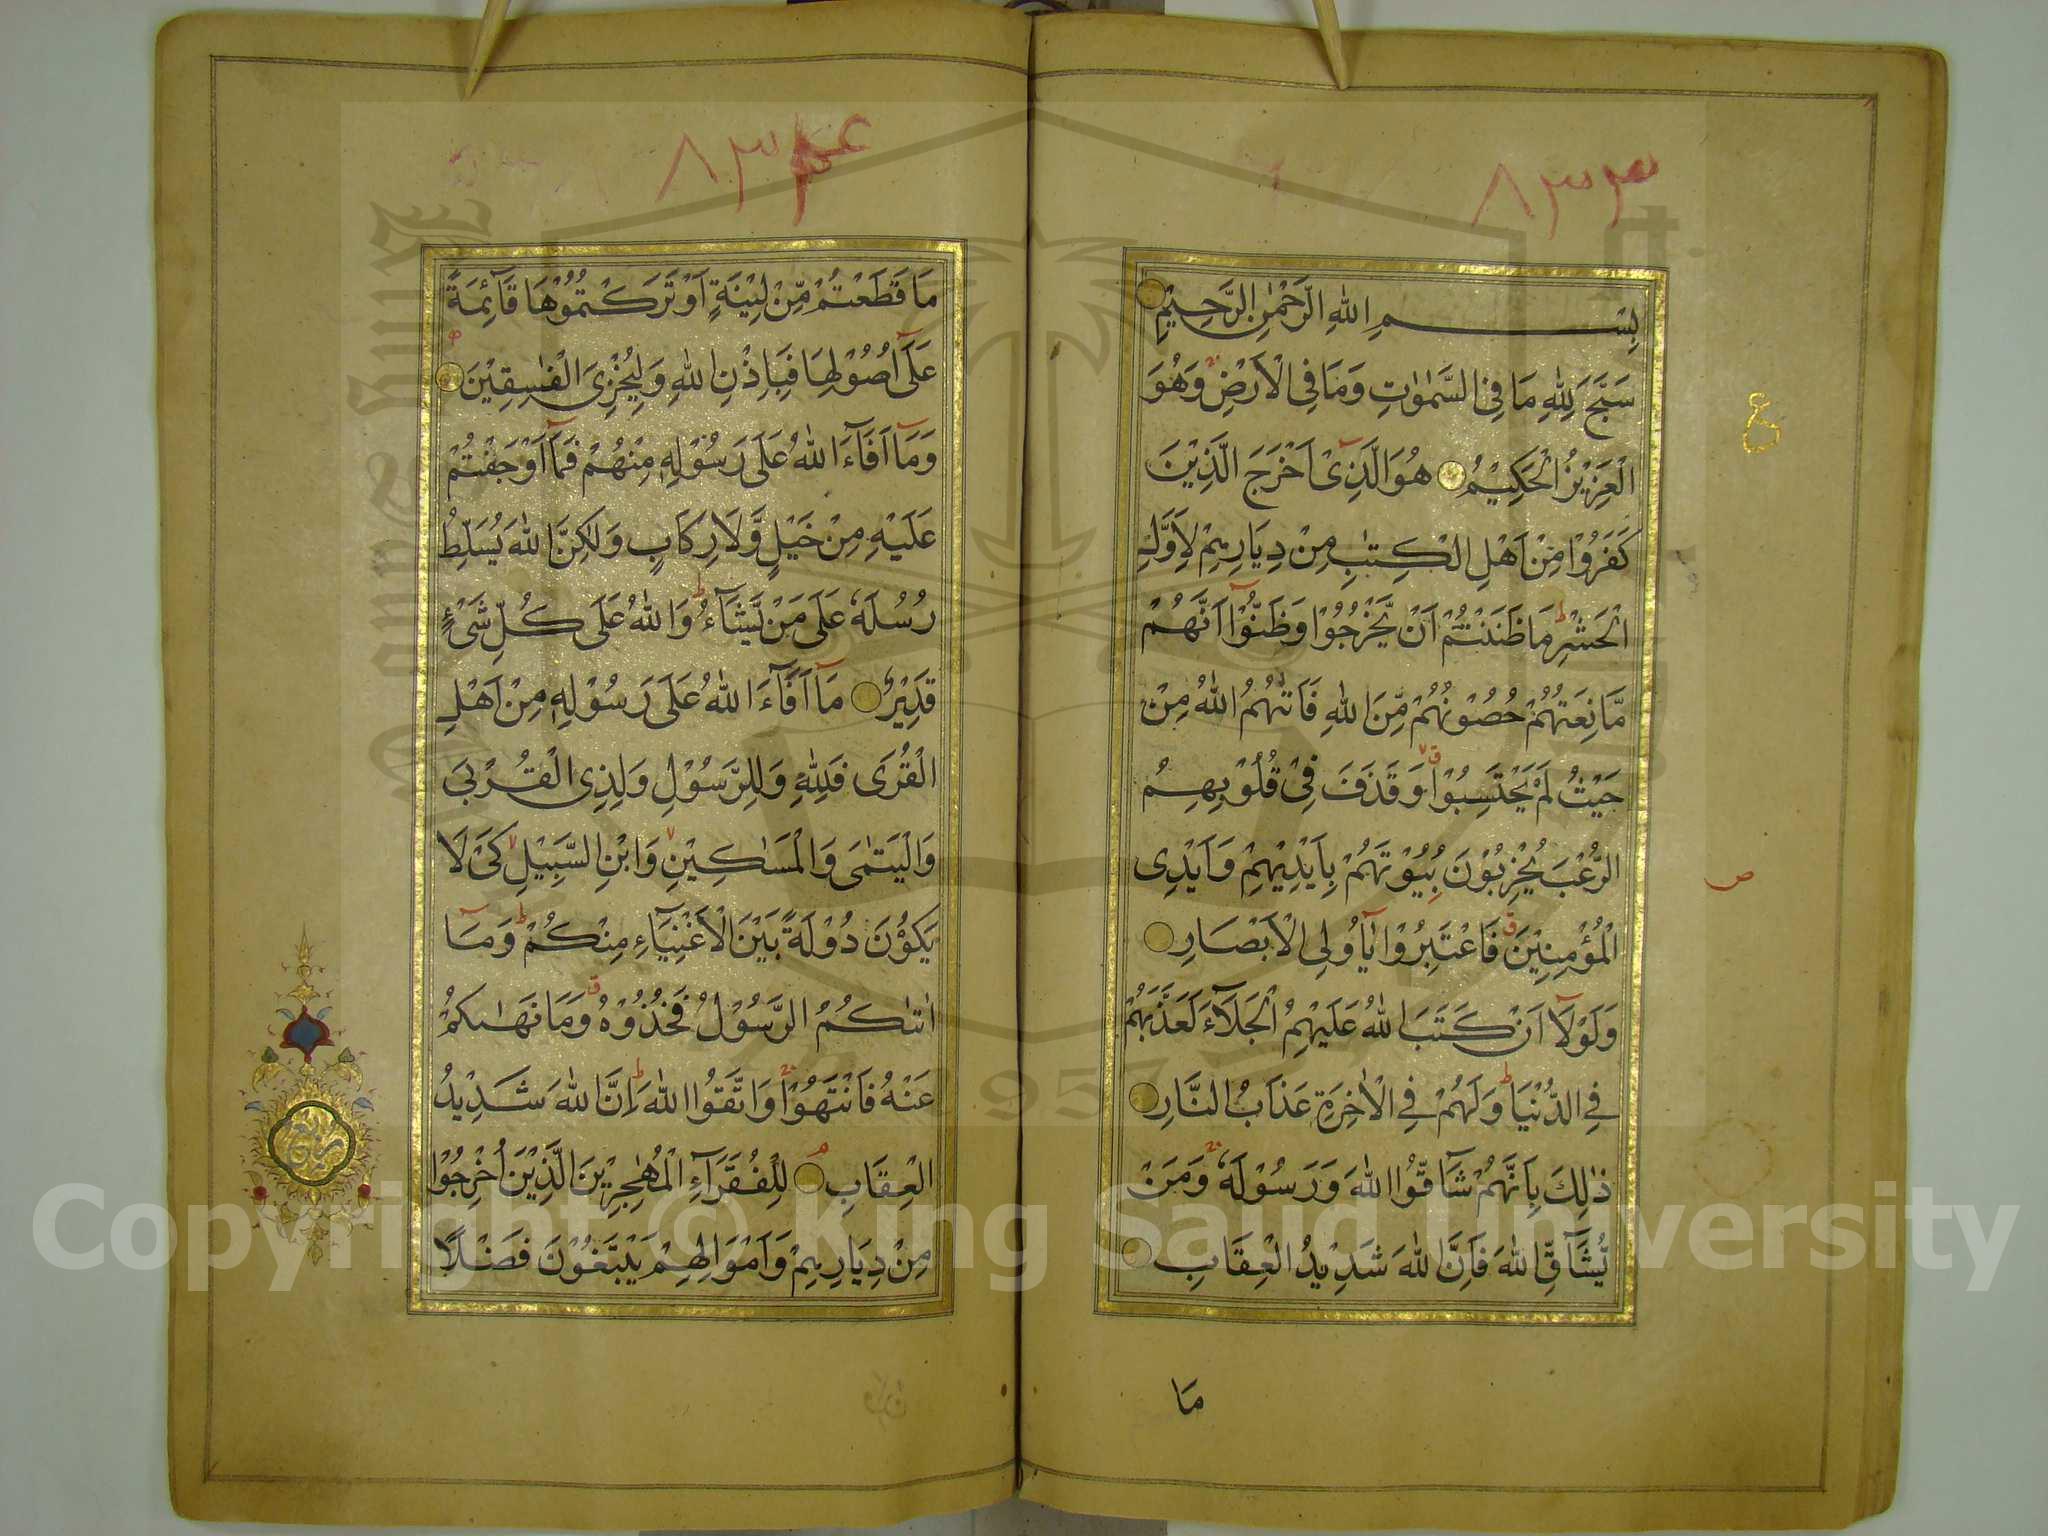 ٨٣٣
بِسْمِ اللهِ الرَّحْمٰنِ الرَّحِيْمِ
سَبَّحَ لِلّٰهِ مَا فِي السَّمٰوٰتِ وَمَا فِي الْاَرْضِ وَهُوَ
الْعَزِيْزُ الْحَكِيْمُ هُوَ الَّذِيْٓ اَخْرَجَ الَّذِيْنَ
كَفَرُوْا مِنْ اَهْلِ الْكِتٰبِ مِنْ دِيَارِهِمْ لِاَوَّلِ
الْحَشْرِ مَا ظَنَنْتُمْ اَنْ يَّخْرُجُوْا وَظَنُّوْٓا اَنَّهُمْ
مَّانِعَتُهُمْ حُصُوْنُهُمْ مِّنَ اللهِ فَاَتٰهُمُ اللهُ مِنْ
حَيْثُ لَمْ يَحْتَسِبُوْا وَقَذَفَ فِيْ قُلُوْبِهِمُ
الرُّعْبَ يُخْرِبُوْنَ بُيُوْتَهُمْ بِاَيْدِيْهِمْ وَاَيْدِى
الْمُؤْمِنِيْنَ فَاعْتَبِرُوْا يٰٓاُولِى الْاَبْصَارِ
وَلَوْلَآ اَنْ كَتَبَ اللهُ عَلَيْهِمُ الْجَلَآءَ لَعَذَّبَهُمْ
فِي الدُّنْيَا وَلَهُمْ فِي الْاٰخِرَةِ عَذَابُ النَّارِ
ذٰلِكَ بِاَنَّهُمْ شَآقُّوا اللهَ وَرَسُوْلَهٗ وَمَنْ
يُّشَآقِّ اللهَ فَاِنَّ اللهَ شَدِيْدُ الْعِقَابِ
مَا
ع
ص
٨٣٤
مَا قَطَعْتُمْ مِّنْ لِيْنَةٍ اَوْ تَرَكْتُمُوْهَا قَآئِمَةً
عَلٰٓى اُصُوْلِهَا فَبِاِذْنِ اللهِ وَلِيُخْزِىَ الْفٰسِقِيْنَ
وَمَآ اَفَآءَ اللهُ عَلٰى رَسُوْلِهٖ مِنْهُمْ فَمَآ اَوْجَفْتُمْ
عَلَيْهِ مِنْ خَيْلٍ وَّلَا رِكَابٍ وَلٰكِنَّ اللهَ يُسَلِّطُ
رُسُلَهٗ عَلٰى مَنْ يَّشَآءُ وَاللهُ عَلٰى كُلِّ شَىْءٍ
قَدِيْرٌ مَآ اَفَآءَ اللهُ عَلٰى رَسُوْلِهٖ مِنْ اَهْلِ
الْقُرٰى فَلِلّٰهِ وَلِلرَّسُوْلِ وَلِذِى الْقُرْبٰى
وَالْيَتٰمٰى وَالْمَسٰكِيْنِ وَابْنِ السَّبِيْلِ كَىْ لَا
يَكُوْنَ دُوْلَةً بَيْنَ الْاَغْنِيَآءِ مِنْكُمْ وَمَآ
اٰتٰىكُمُ الرَّسُوْلُ فَخُذُوْهُ وَمَا نَهٰىكُمْ
عَنْهُ فَانْتَهُوْا وَاتَّقُوا اللهَ اِنَّ اللهَ شَدِيْدُ
الْعِقَابِ لِلْفُقَرَآءِ الْمُهٰجِرِيْنَ الَّذِيْنَ اُخْرِجُوْا
مِنْ دِيَارِهِمْ وَاَمْوَالِهِمْ يَبْتَغُوْنَ فَضْلًا
Copyright © King Saud University
1957